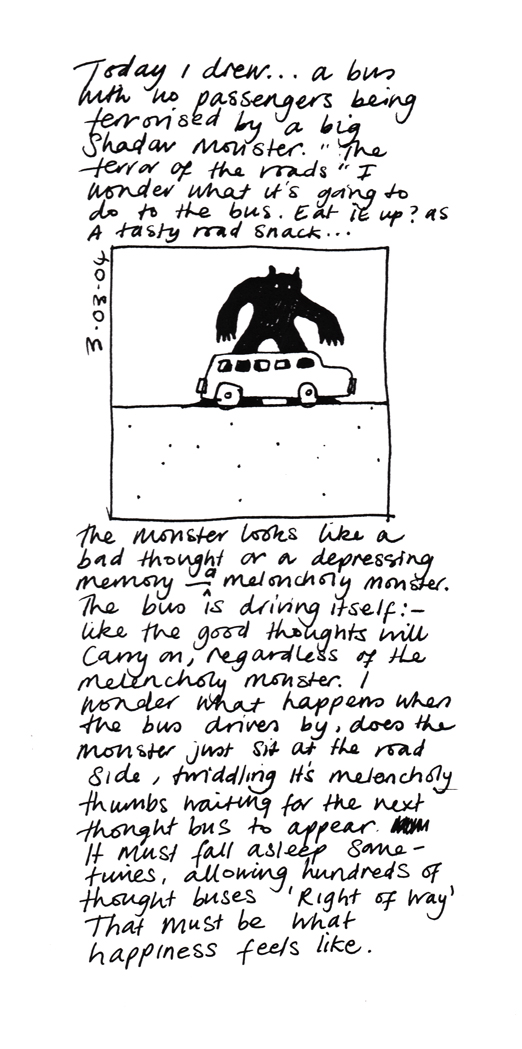 Today I drew... a bus
with no passengers being
terrorised by a big
Shadow Monster. "The
terror of the roads" I
wonder what it's going to
do to the bus. Eat it up? as
A tasty road snack...
3·03·04
The monster looks like a
bad thought or a depressing
memory — a meloncholy monster.
The bus is driving itself:-
like the good thoughts will
Carry on, regardless of the
melencholy monster. I
wonder what happens when
the bus drives by, does the
monster just sit at the road
Side, twiddling it's melencholy
thumbs waiting for the next
thought bus to appear.
It must fall asleep some-
times, allowing hundreds of
thought buses 'Right of Way'
That must be what
happiness feels like.